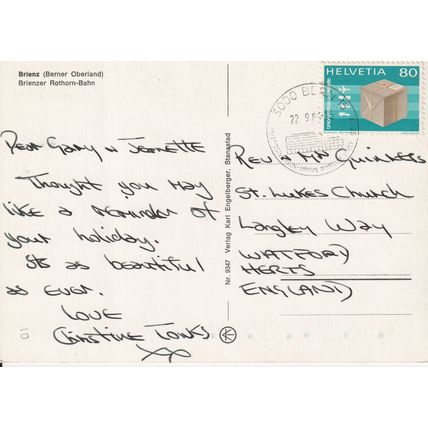 Brienz (Berner Oberland)
Brienzer Rothorn-Bahn
Dear Gary n Jeanette
Thought you may
like a reminder of
your holiday.
Its as beautiful
as ever.
Love
Christine Tonks
xx
10
Nr. 9347 Verlag Karl Engelberger, Stansstad
HELVETIA 80
3000 BERN
22.9.
Rev & Mr Guinness
St. Lukes Church
Langley Way
WATFORD
HERTS
ENGLAND